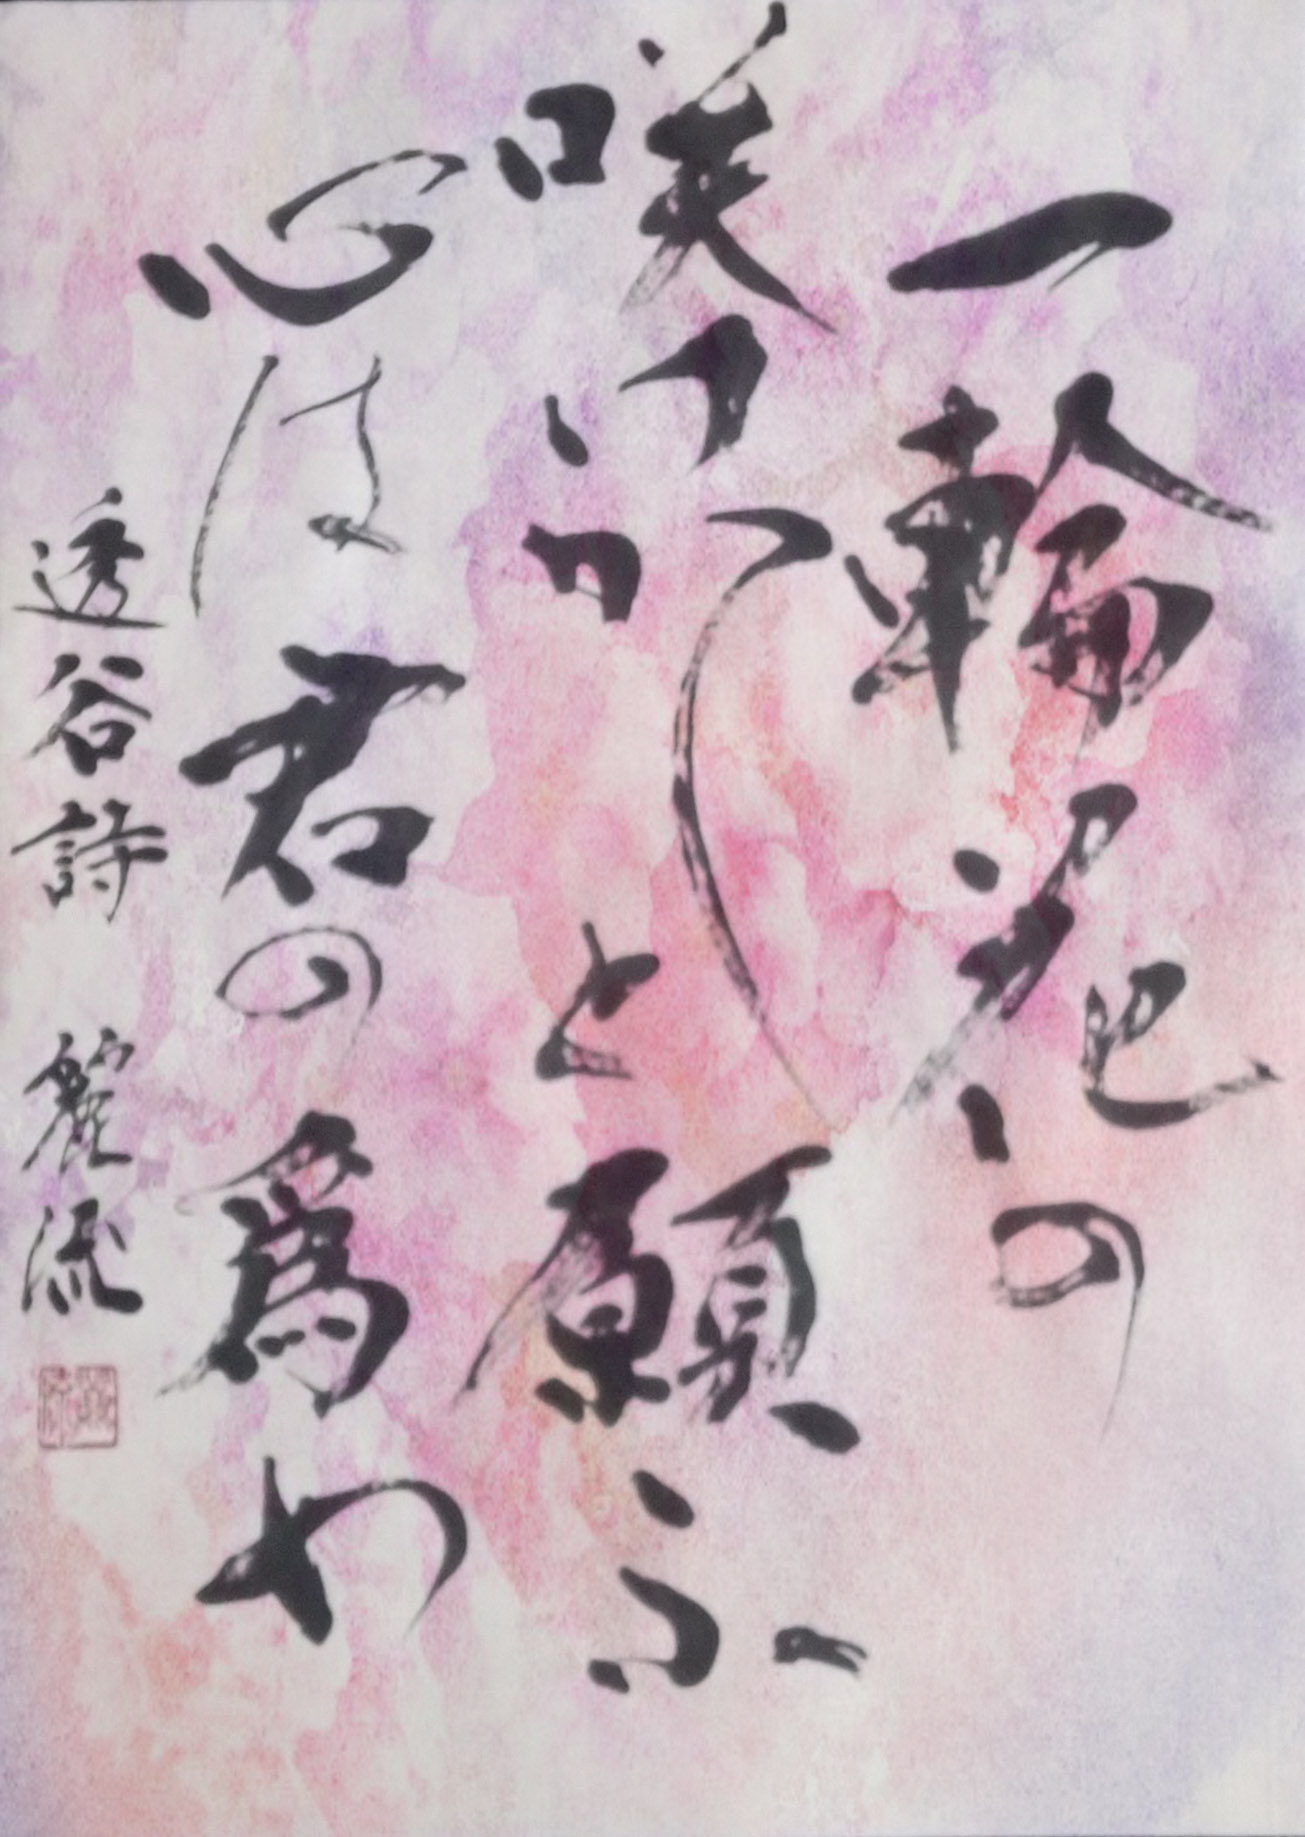 一輪花の
咲けかしと願ふ
心は君の爲め
透谷詩 麗流